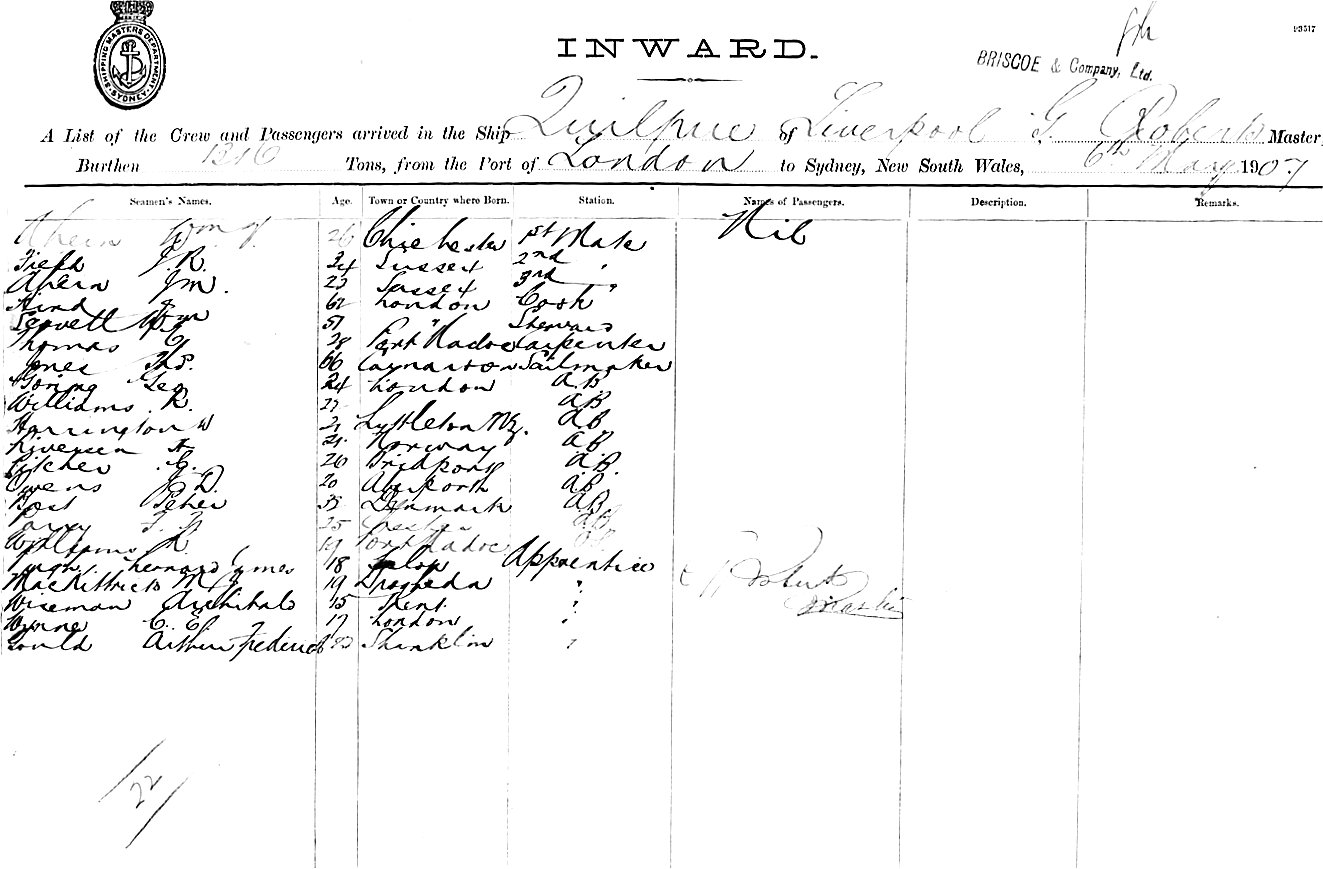 SHIPPING MASTERS DEPARTMENT SYDNEY
93517
INWARD.
BRISCOE & Company, Ltd.
A List of the Crew and Passengers arrived in the Ship Quilpue of Liverpool G. Roberts Master,
Burthen Tons, from the Port of London to Sydney, New South Wales, 6th May 1907
Seamen's Names. Age. Town or Country where Born. Station. Names of Passengers. Description. Remarks.
Ahern Wm J. 26 Chichester 1st Mate Nil
J. R. 24 Sussex 2nd "
Ahern J M. 23 Sussex 3rd "
Hind London Cook
57 " Steward
Thomas 28 Port Madoc Carpenter
Jones Ths. 66 Carnarvon Sailmaker
Goring Geo 24 London A.B.
Williams R. AB
Harrington W 21 Lyttleton NZ. AB
Norway AB
Pitcher G. 26 Bridport A.B.
Owens J D. 20 Aberporth AB
Peter Denmark AB
Parry 25 AB
Williams R. 19 Port Madoc
Pugh James 18 Salop Apprentice
MacKittrick M J 19 Drogheda "
Wiseman Archibald 15 Kent "
Wynne C. E. 17 London "
Gould Arthur Frederick Shanklin "
G Roberts
Master
22